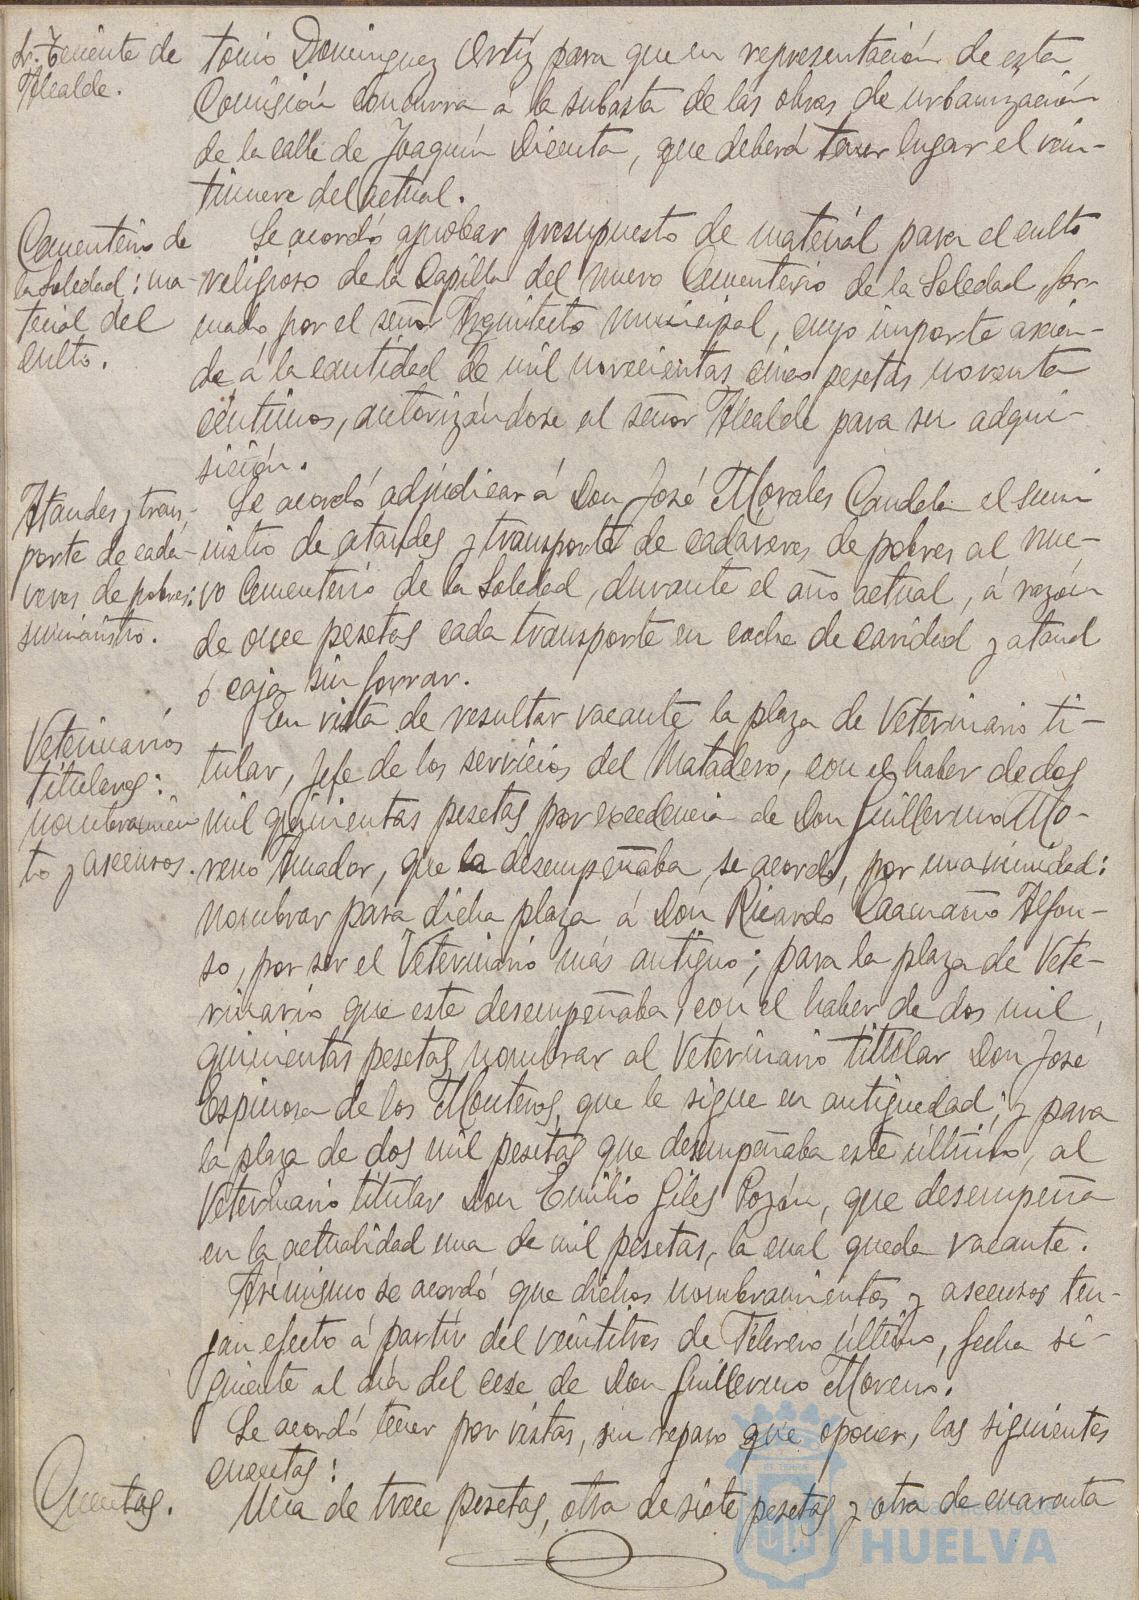 Sr. Teniente de
Alcalde.
tonio Dominguez Ortíz para que en representación de esta
Comisión concurra á la subasta de las obras de urbanización
de la calle de Joaquín Dicenta, que deberá tener lugar el vein-
tinueve del actual.
Cementerio de
la Soledad: ma-
terial del
culto.
Se acordó aprobar presupuesto de material para el culto
religioso de la Capilla del nuevo Cementerio de la Soledad, for-
mado por el señor Arquitecto municipal, cuyo importe ascien-
de á la cantidad de mil novecientas cinco pesetas noventa
céntimos, autorizándose al señor Alcalde para su adqui-
sición.
Ataudes y trans-
porte de cadá-
veres de pobres:
suministro.
Se acordó adjudicar á Don José Morales Candela el sumi
nistro de ataudes y transporte de cadaveres de pobres al nue-
vo Cementerio de la Soledad, durante el año actual, á razón
de once pesetas cada transporte en coche de caridad y ataud
ó caja sin forrar.
Veterinarios
titulares:
nombramien
to y ascensos.
En vista de resultar vacante la plaza de Veterinario ti-
tular, Jefe de los servicios del Matadero, con el haber de dos
mil quinientas pesetas por excedencia de Don Guillermo Mo-
reno Amador, que la desempeñaba, se acordó, por unanimidad:
nombrar para dicha plaza á Don Ricardo Caamaño Alfon-
so, por ser el Veterinario más antiguo; para la plaza de Vete-
rinario que este desempeñaba, con el haber de dos mil
quinientas pesetas, nombrar al Veterinario titular Don José
Espinosa de los Monteros, que le sigue en antiguedad; y para
la plaza de dos mil pesetas que desempeñaba este último, al
Veterinario titular Don Emilio Giles Pozán, que desempeña
en la actualidad una de mil pesetas, la cual queda vacante.
Asimismo se acordó que dichos nombramientos y ascensos ten-
gan efecto á partir del veintitres de Febrero último, fecha si-
guiente al día del cese de Don Guillermo Moreno.
Cuentas.
Se acordó tener por vistas, sin reparo que oponer, las siguientes
cuentas:
Una de trece pesetas, otra de siete pesetas y otra de cuarenta
Ayuntamiento de
HUELVA